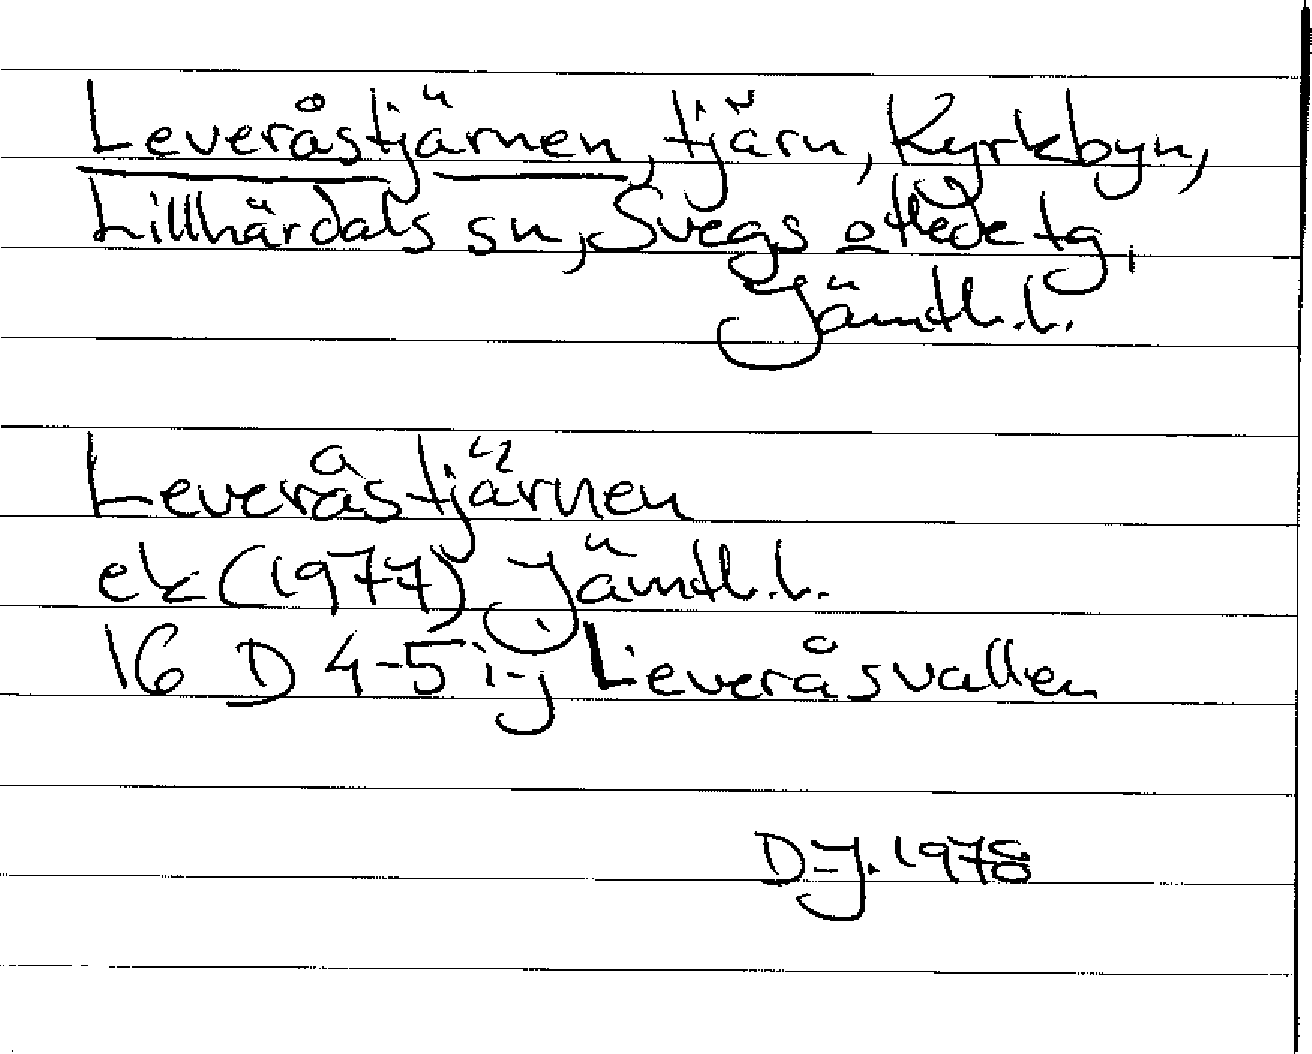 Leveråstjärnen, tjärn, Kyrkbyn,
Lillhärdals sn, Svegs tg,
Jämtl.l.
Leveråstjärnen
ek (1977) Jämtl.l.
16 D 4-5 i-j Leveråsvallen
D-J. 1978